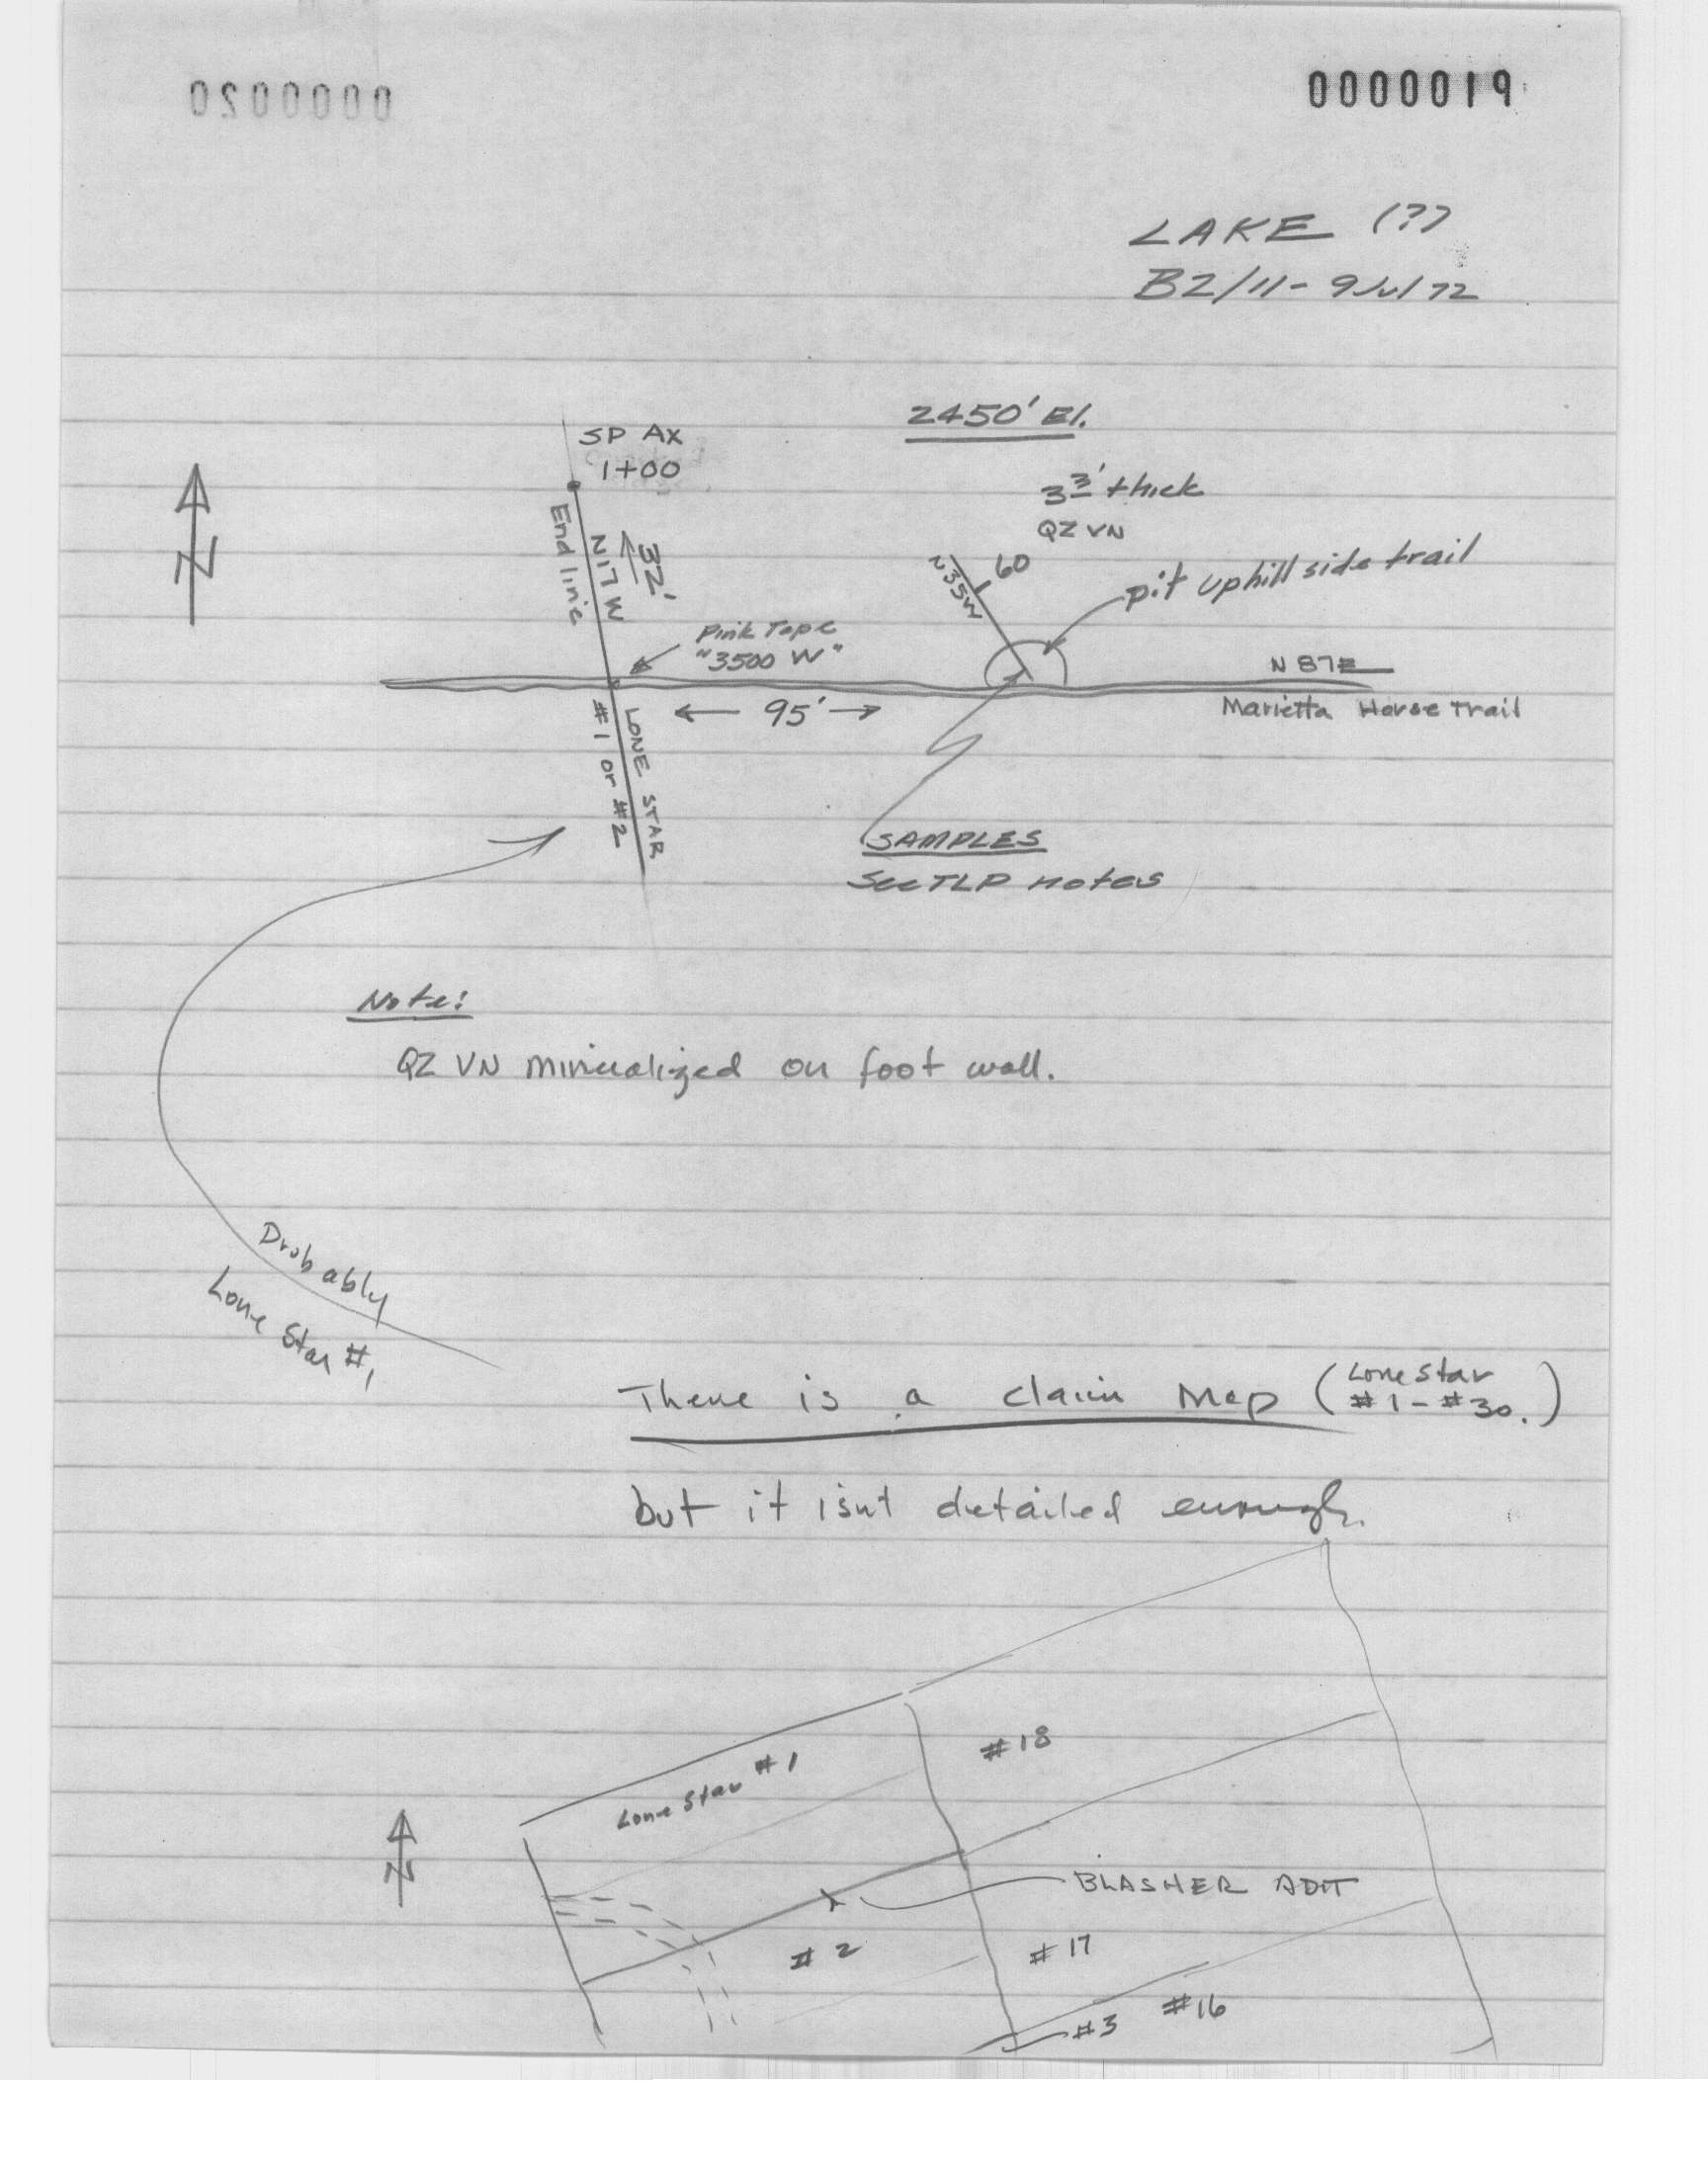 0000020
0000019
LAKE (??)
B2/11- 9 Jul 72
2450' El.
SP AX
1+00
3 3' thick
QZ VN
End line
N17W
32'
N35W
60
pit uphill side trail
Pink Tape
"3500 W"
N 87E
N
95'
Marietta Horse Trail
LONE STAR
#1 or #2
SAMPLES
See TLP notes
Note:
QZ VN mineralized on foot wall.
Probably
Lone Star #1
There is a claim map (Lone Star
#1-#30.)
but it isnt detailed enough.
#18
Lone Star #1
N
BLASHER ADIT
#2
#17
#16
#3